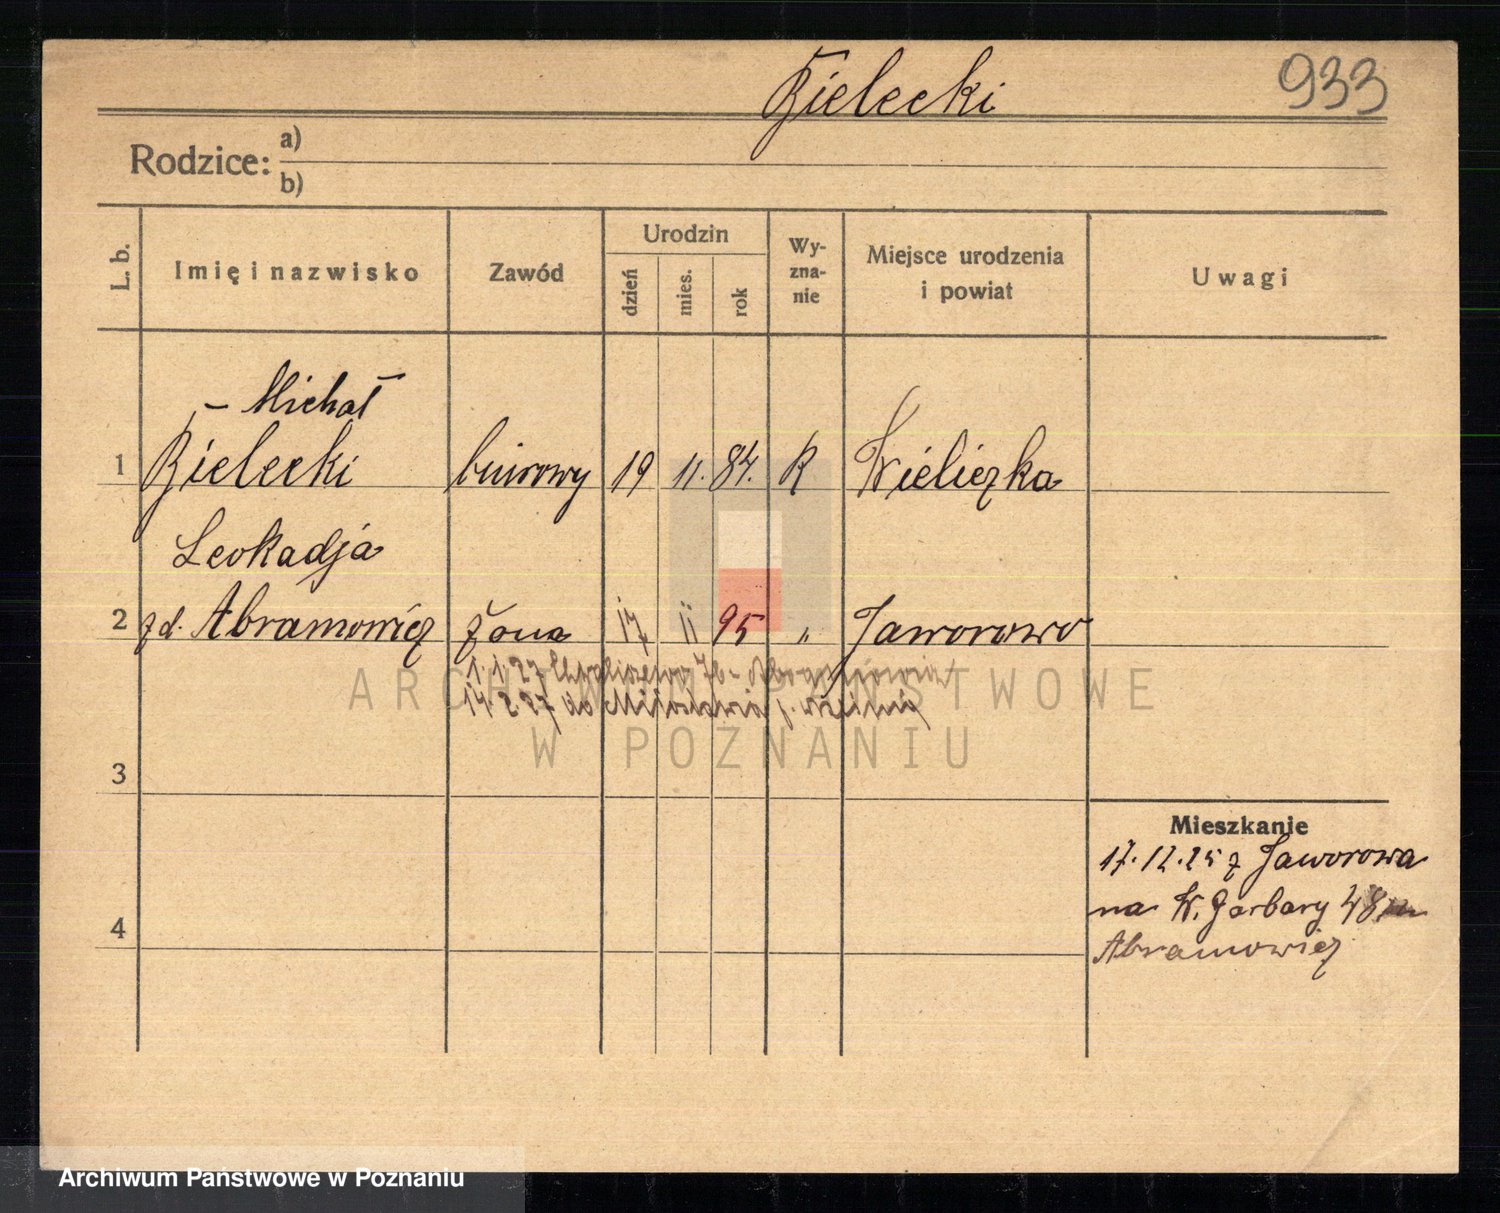 Bielecki
933
Rodzice: a)
b)
L. b.
Imię i nazwisko
Zawód
Urodzin
dzień
mies.
rok
Wy-
zna-
nie
Miejsce urodzenia
i powiat
Uwagi
– Michał –
1 Bielecki biurowy 19 11. 84. R Wieliczka
Leokadja
2 zd. Abramowicz żona 17 11 95 „ Jaworowo
1.1.27
14.8.27 do
3
Mieszkanie
17.12.25 z Jaworowa
na W. Garbary 48
4
Abramowicz
ARCHIWUM PAŃSTWOWE
W POZNANIU
Archiwum Państwowe w Poznaniu